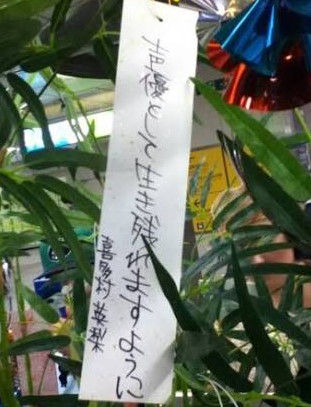 声優として生き残れますように
喜多村英梨